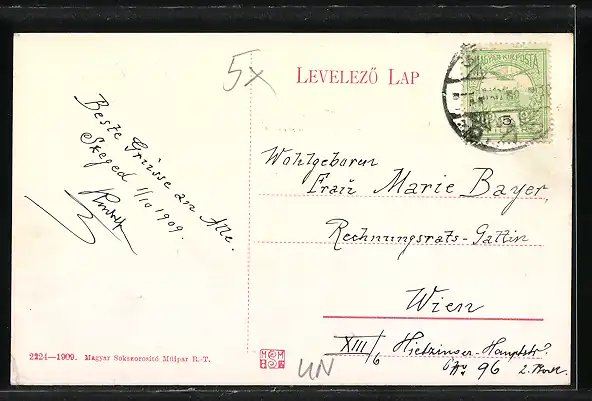 5x
LEVELEZŐ LAP
MAGYAR KIR. POSTA
Beste Grüsse an Alle.
Szeged 1/10 1909.
Rudolf
Wohlgeboren
Frau Marie Bayer,
Rechnungsrats-Gattin
Wien
XIII/6 Hietzinger-Hauptstr.
96
2224—1909. Magyar Sokszorosító Műipar R.-T.
UN